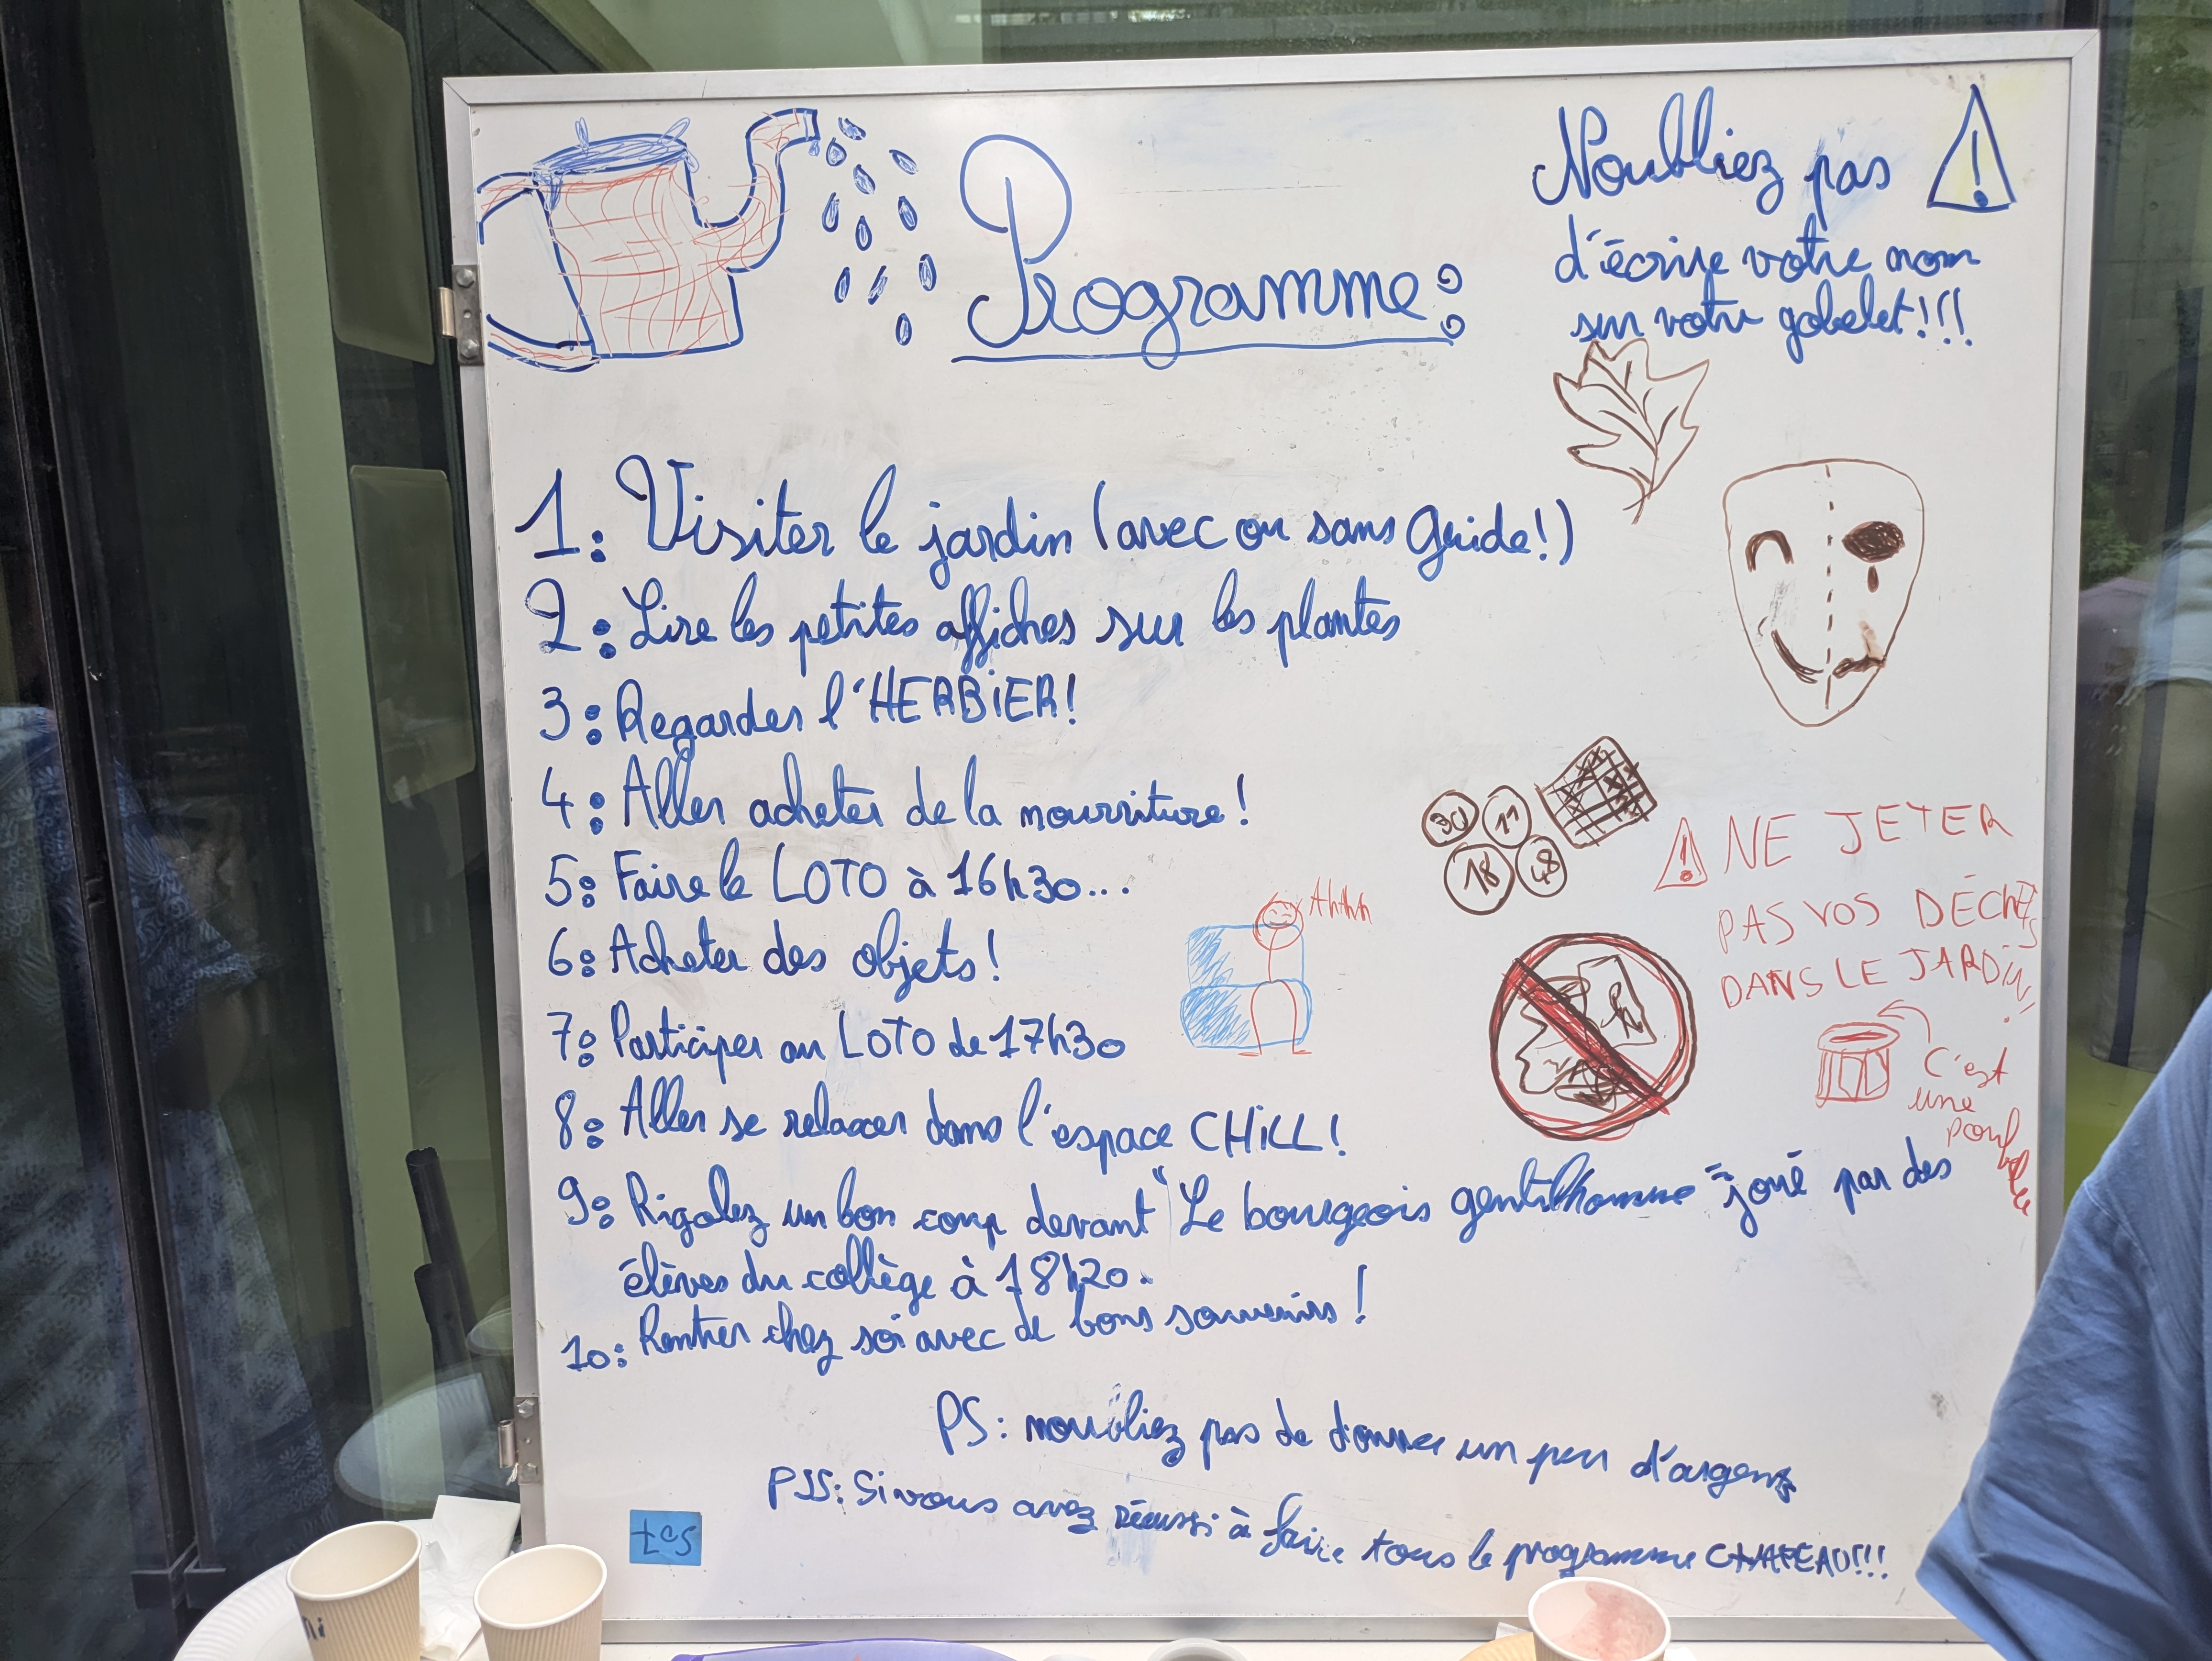 Programme :
N'oubliez pas
d'écrire votre nom
sur votre gobelet!!!
1: Visiter le jardin (avec ou sans guide!)
2: Lire les petites affiches sur les plantes
3: Regarder l'HERBIER!
4: Aller acheter de la nourriture!
5: Faire le LOTO à 16h30...
6: Acheter des objets!
7: Participer au LOTO de 17h30
8: Aller se relaxer dans l'espace CHILL!
9: Rigolez un bon coup devant "Le bourgeois gentilhomme" joué par des
élèves du collège à 18h20.
10: Rentrer chez soi avec de bons souvenirs!
30 11
18 48
Ahhhh
NE JETER
PAS VOS DÉCHETS
DANS LE JARDIN
C'est
une
poubelle
PS: noubliez pas de donner un peu d'argent
PSS: Si vous avez réussi à faire tous le programme CHAPEAU!!!